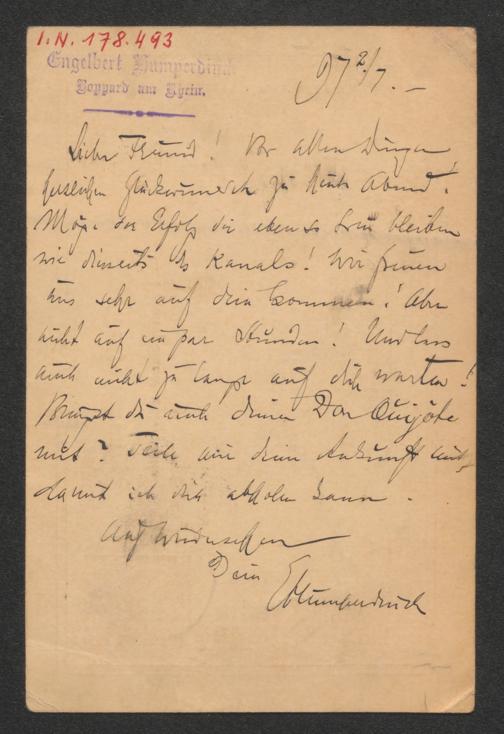 I.N. 178.493
Engelbert Humperdinck
Boppard am Rhein.
97 2/7. –
Lieber Freund! Vor allen Dingen
herzlichen Glückwunsch zu heute Abend!
Möge der Erfolg dir ebenso treu bleiben
wie diesseits des Kanals! Wir freuen
uns sehr auf dein Kommen! Aber
nicht auf ein par Stunden! Und lass
auch nicht zu lange auf dich warten!
Bringst du auch deinen Don Quijote
mit? Teile mir deine Ankunft mit,
damit ich dich abholen kann.
Auf Wiedersehen
Dein
EHumperdinck